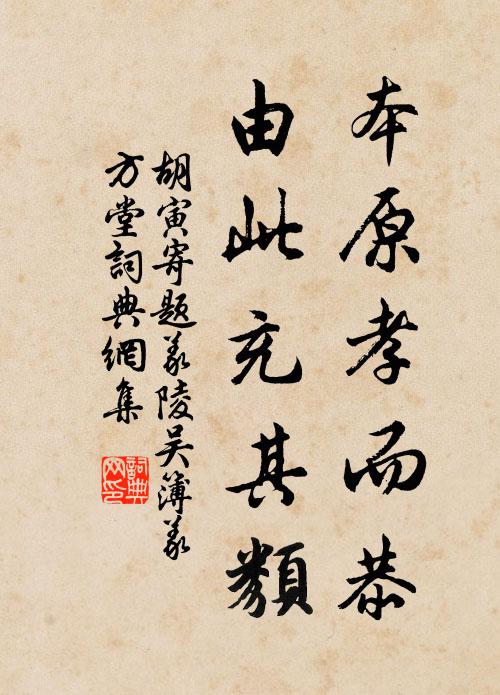 本原孝而恭
由此充其類
胡寅寄題義陵吳簿義
方堂詞典網集
詞典網印